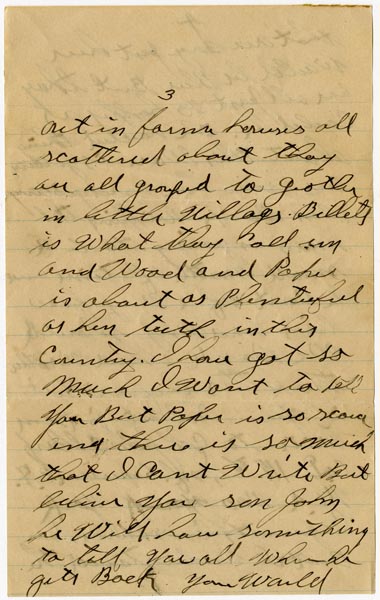 3
out in farm houses all
scattered about they
are all grouped to geother
in little Villags. Billets
is What they Call em
and Wood and Paper
is about as Plentiful
as hen teeth in this
Country. I have got so
Much I Want to tell
you But Paper is so scarce
and there is so much
that I Cant Write But
belive you son John
he Will have something
to tell you all when he
gets Back you Would